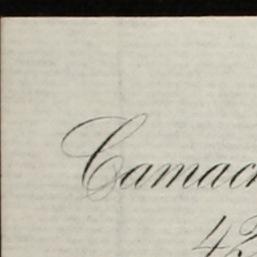 Camac
42